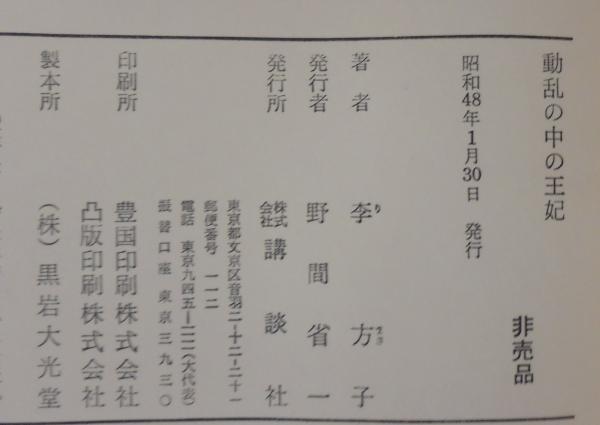 動乱の中の王妃
非売品
昭和48年1月30日 発行
著者 李方子
り まさ
発行者 野間省一
発行所 株式会社 講談社
東京都文京区音羽二-十二-二十一
郵便番号 一一二
電話 東京九四五-一一一一(大代表)
振替口座 東京三九三〇
印刷所 豊国印刷株式会社
凸版印刷株式会社
製本所 (株)黒岩大光堂